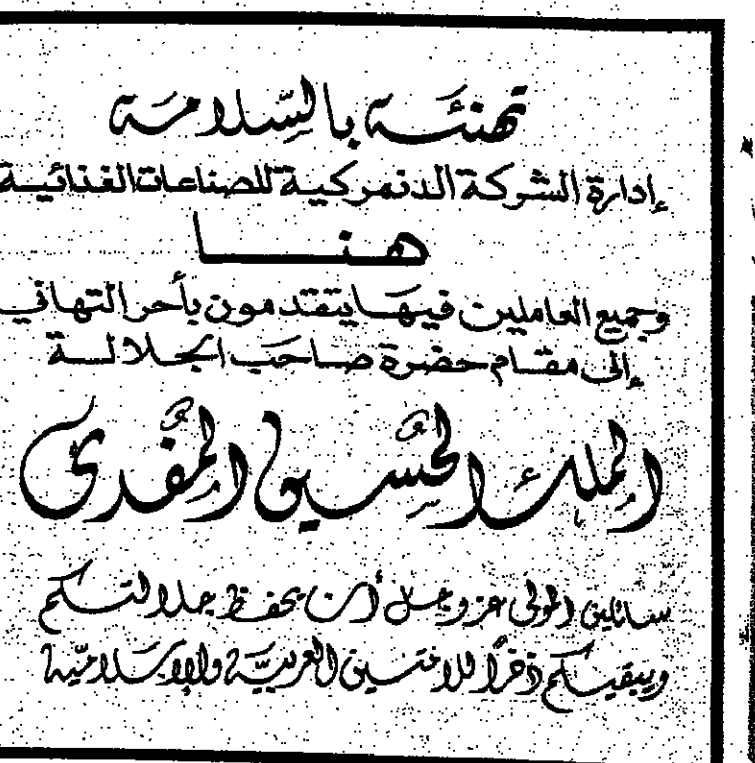 تهنئة بالسلامة
إدارة الشركة الدنمركية للصناعات الغذائية
هنا
وجميع العاملين فيها يتقدمون بأحر التهاني
إلى مقام حضرة صاحب الجلالة
الملك الحُسين المُفدى
سائلين المولى عز وجل أن يحفظ جلالتكم
ويبقيكم ذخراً للامتين العربيّة والإسلاميّة